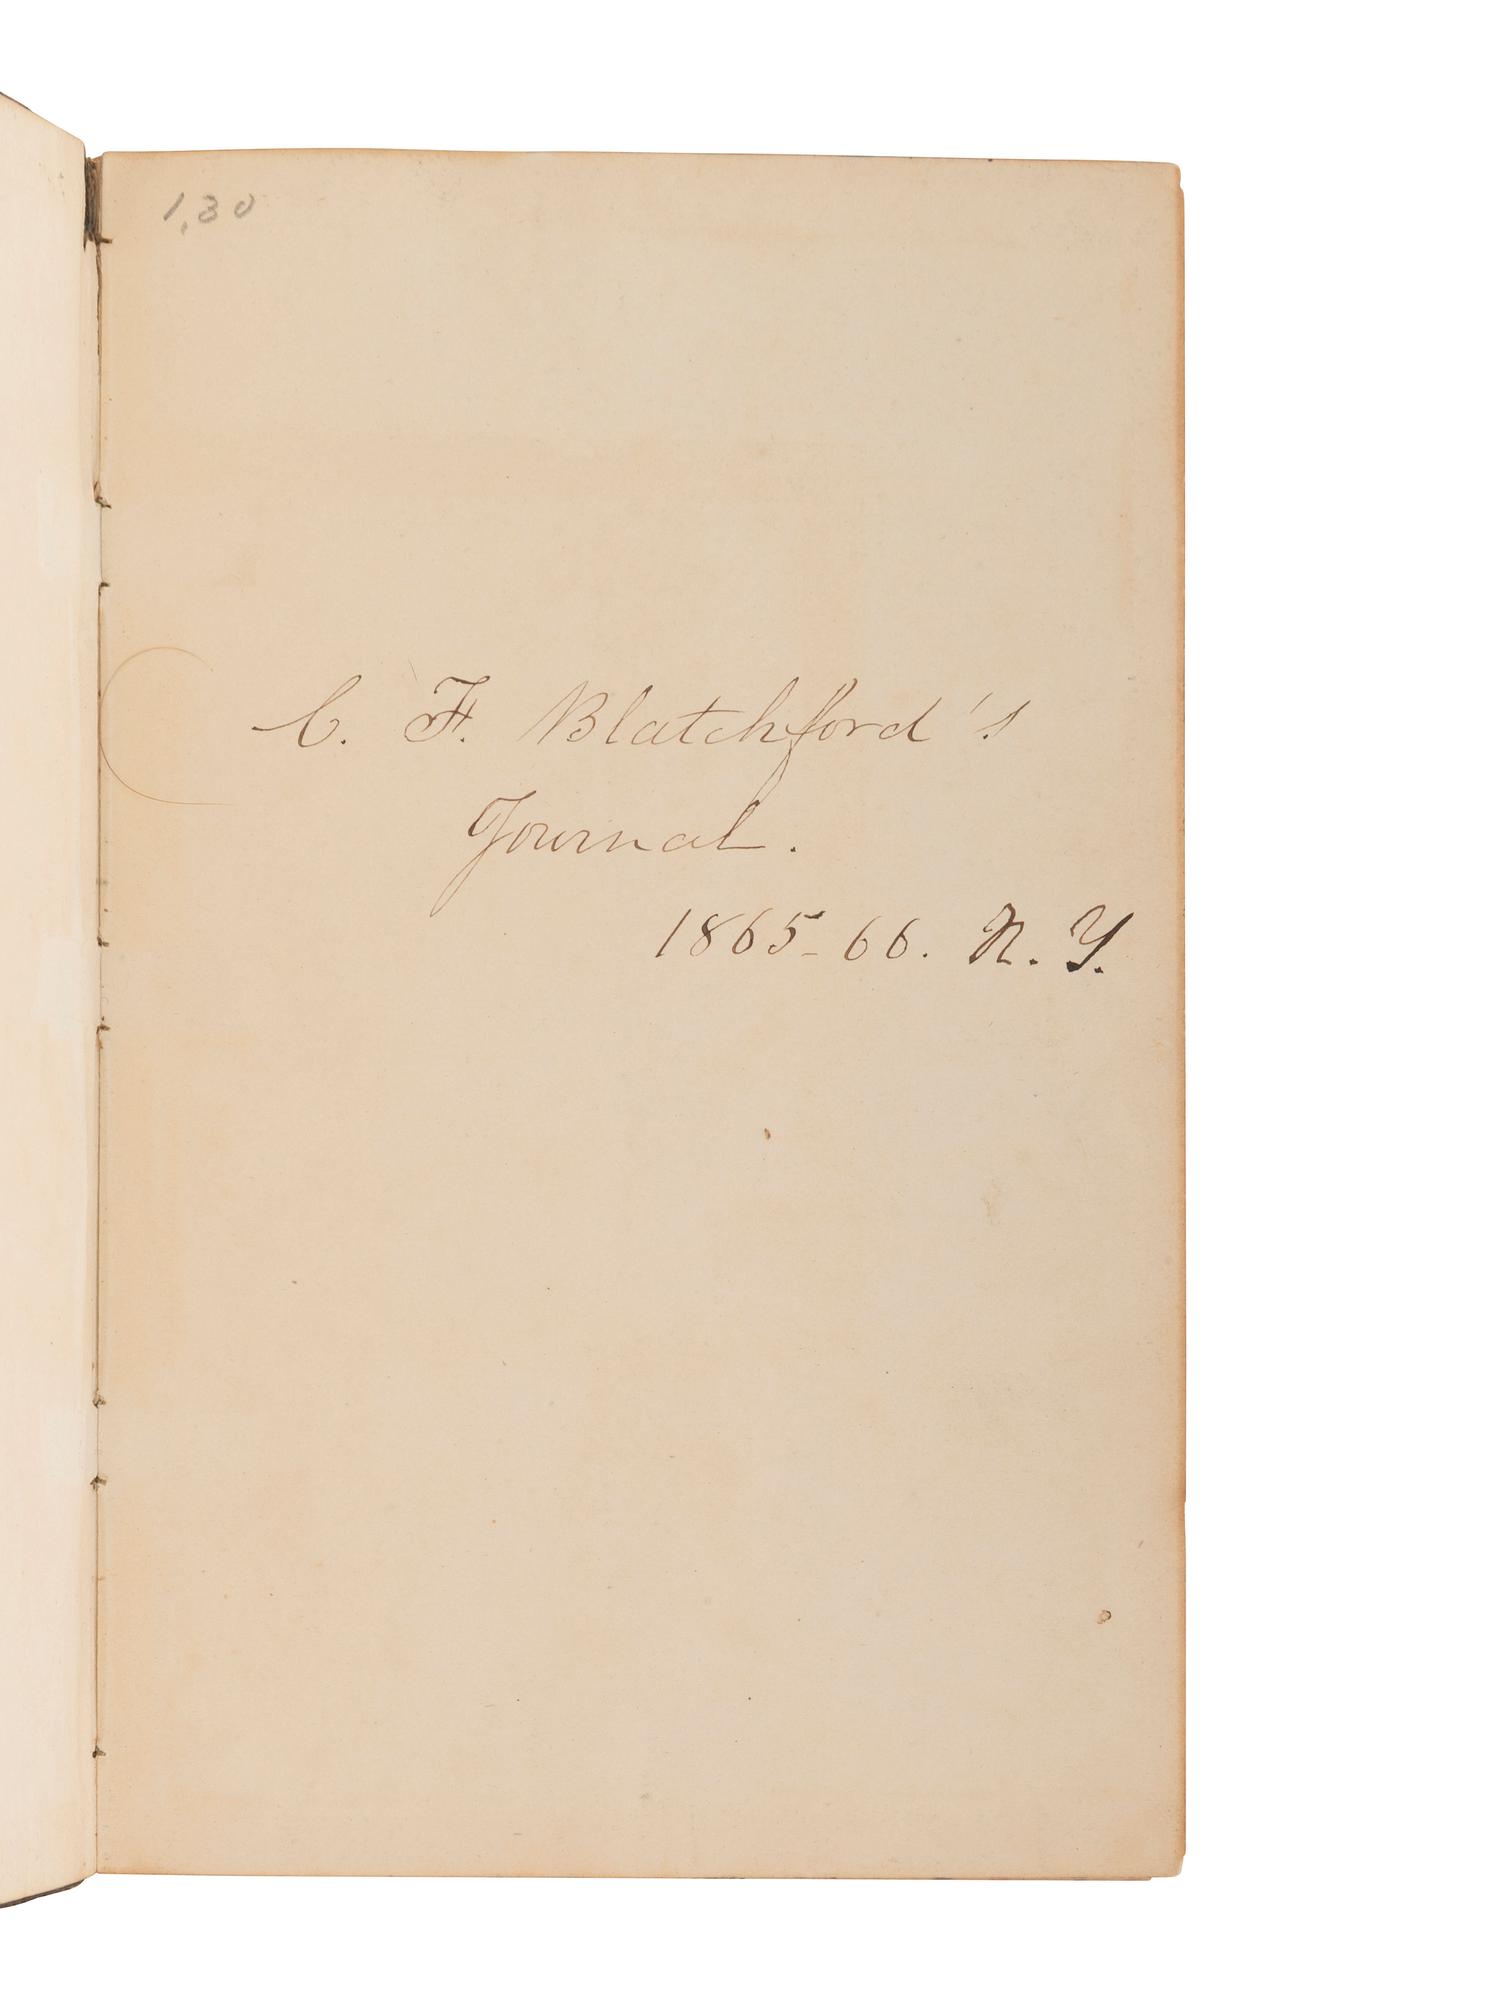 1,30
C. F. Blatchford's
Journal.
1865-66. N. Y.